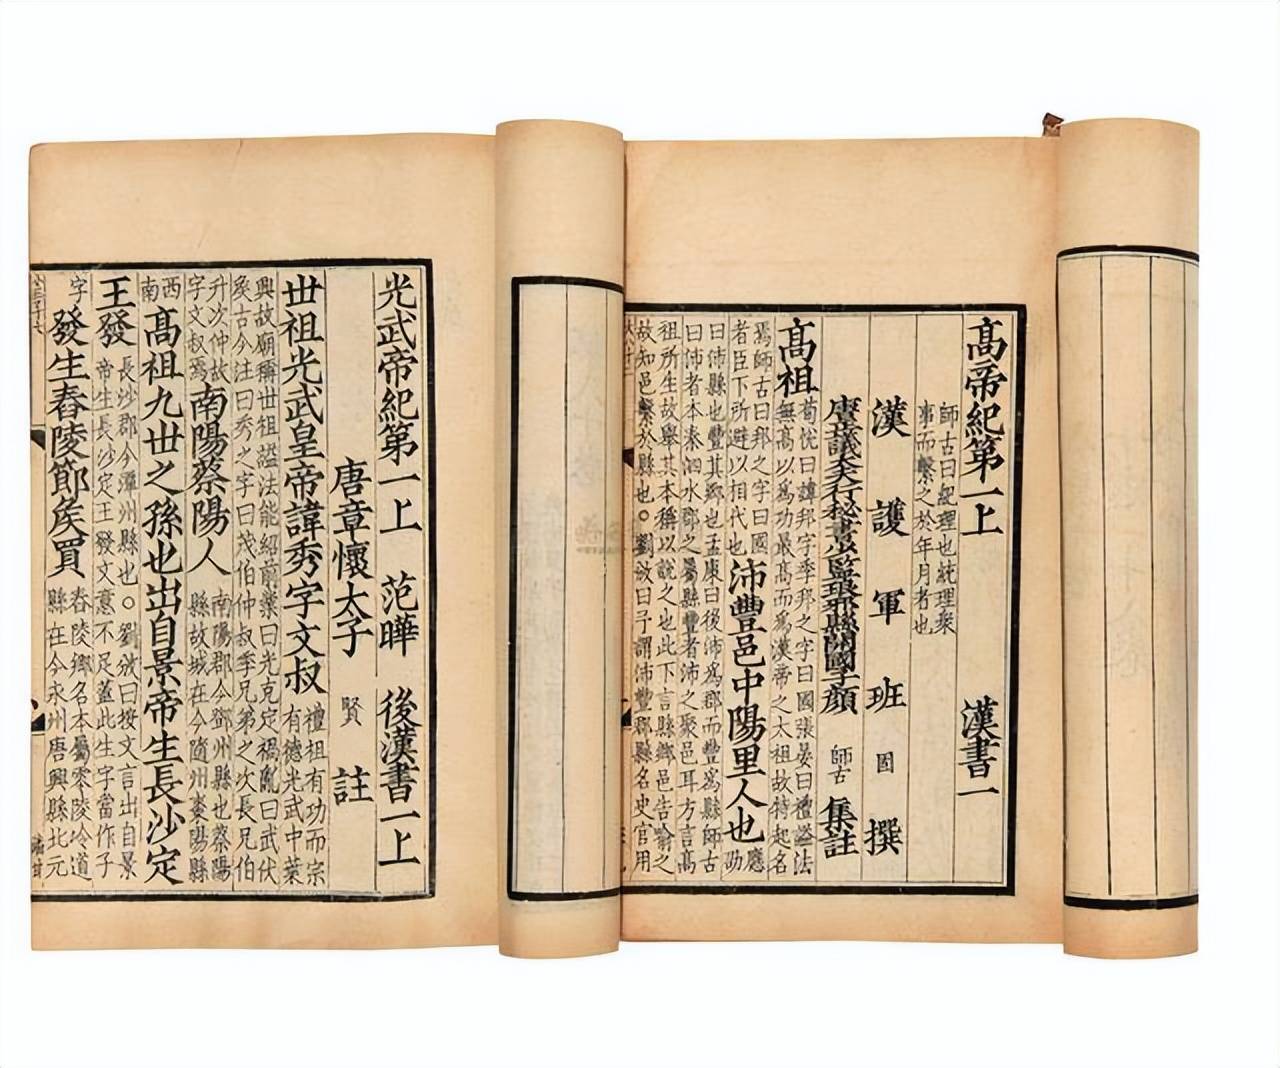 髙帝紀第一上 漢書一
師古曰紀理也統理衆
事而繫之於年月者也
漢護軍班固撰
唐議大夫行秘書少監琅邪縣開國子顔師古集註
髙祖荀悅曰諱邦字季邦之字曰國張晏曰禮謚法無髙以爲功最髙而爲漢帝之太祖故特起名
焉師古曰邦之字曰國者臣下所避以相代也沛豐邑中陽里人也應劭
曰沛縣也豐其鄉也孟康曰後沛爲郡而豐爲縣師古曰沛者本秦泗水郡之屬縣豐者沛之聚邑耳方言髙
祖所生故舉其本稱以說之也此下言縣鄉邑告喻之故知邑繫於縣也。劉攽曰予謂沛豐郡縣名史官用
光武帝紀第一上 范曄 後漢書一上
唐章懷太子賢註
世祖光武皇帝諱秀字文叔禮祖有功而宗有德光武中葉
興故廟稱世祖謚法能紹前業曰光克定禍亂曰武伏矦古今注曰秀之字曰茂伯仲叔季兄弟之次長兄伯
升次仲故字文叔焉南陽蔡陽人南陽郡今鄧州縣也蔡陽縣故城在今隨州棗陽縣
西南髙祖九世之孫也出自景帝生長沙定
王發長沙郡今潭州縣也。劉攽曰按文言出自景帝生長沙定王發文意不足蓋此生字當作子
字發生舂陵節矦買舂陵鄉名本屬零陵泠道縣在今永州唐興縣北元